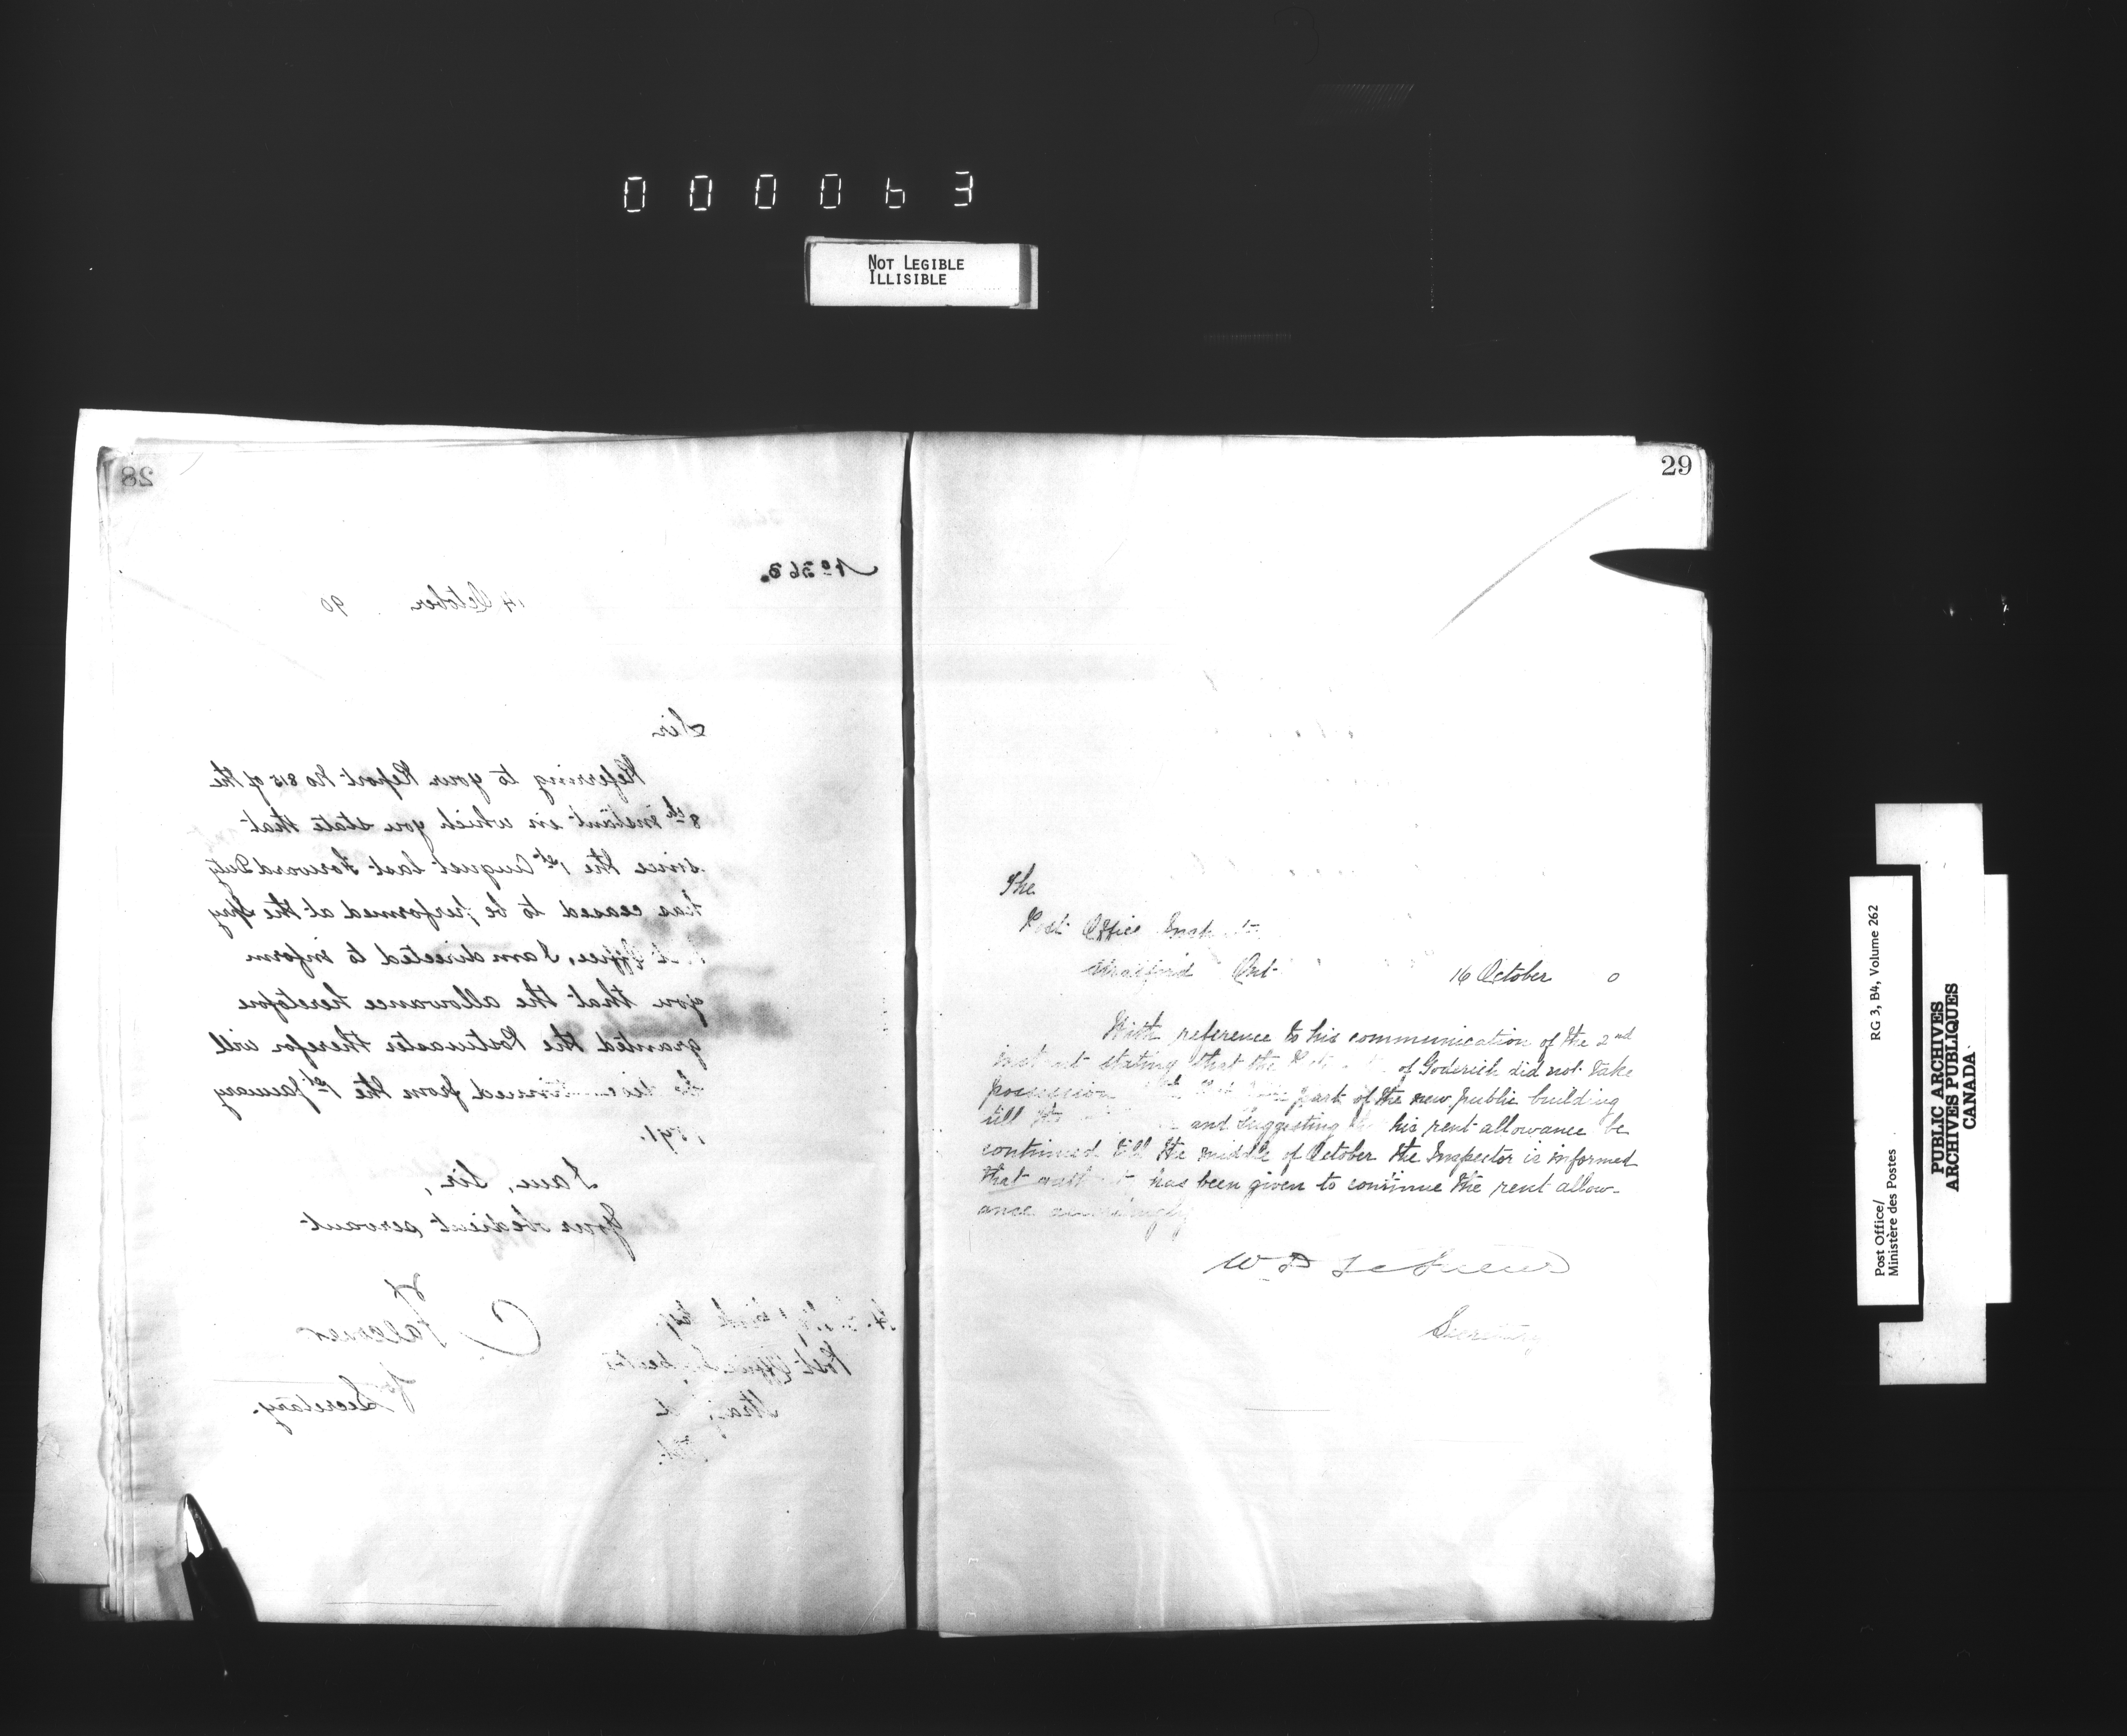 000063
NOT LEGIBLE
ILLISIBLE
28
No 363.
14 October 90
Sir
Referring to your Report No 815 of the
8th instant in which you state that
since the 1st August last Forward Duty
has ceased to be performed at the
Office, I am directed to inform
you that the allowance heretofore
granted the Postmaster therefor will
be discontinued from the 1st January
1891.
I am, Sir,
Your obedient servant
Falconer
for Secretary.
Esq.
Post Office Inspector
29
The
Post Office
Stratford Ont
16 October 0
With reference to his communication of the 2nd
stating that the of Goderich did not take
possession part of the new public building
till the and suggesting his rent allowance be
continued till the middle of October the Inspector is informed
that has been given to continue the rent allow-
ance
W D LeSueur
Secretary
Post Office/
Ministère des Postes
RG 3, B4, Volume 262
PUBLIC ARCHIVES
ARCHIVES PUBLIQUES
CANADA